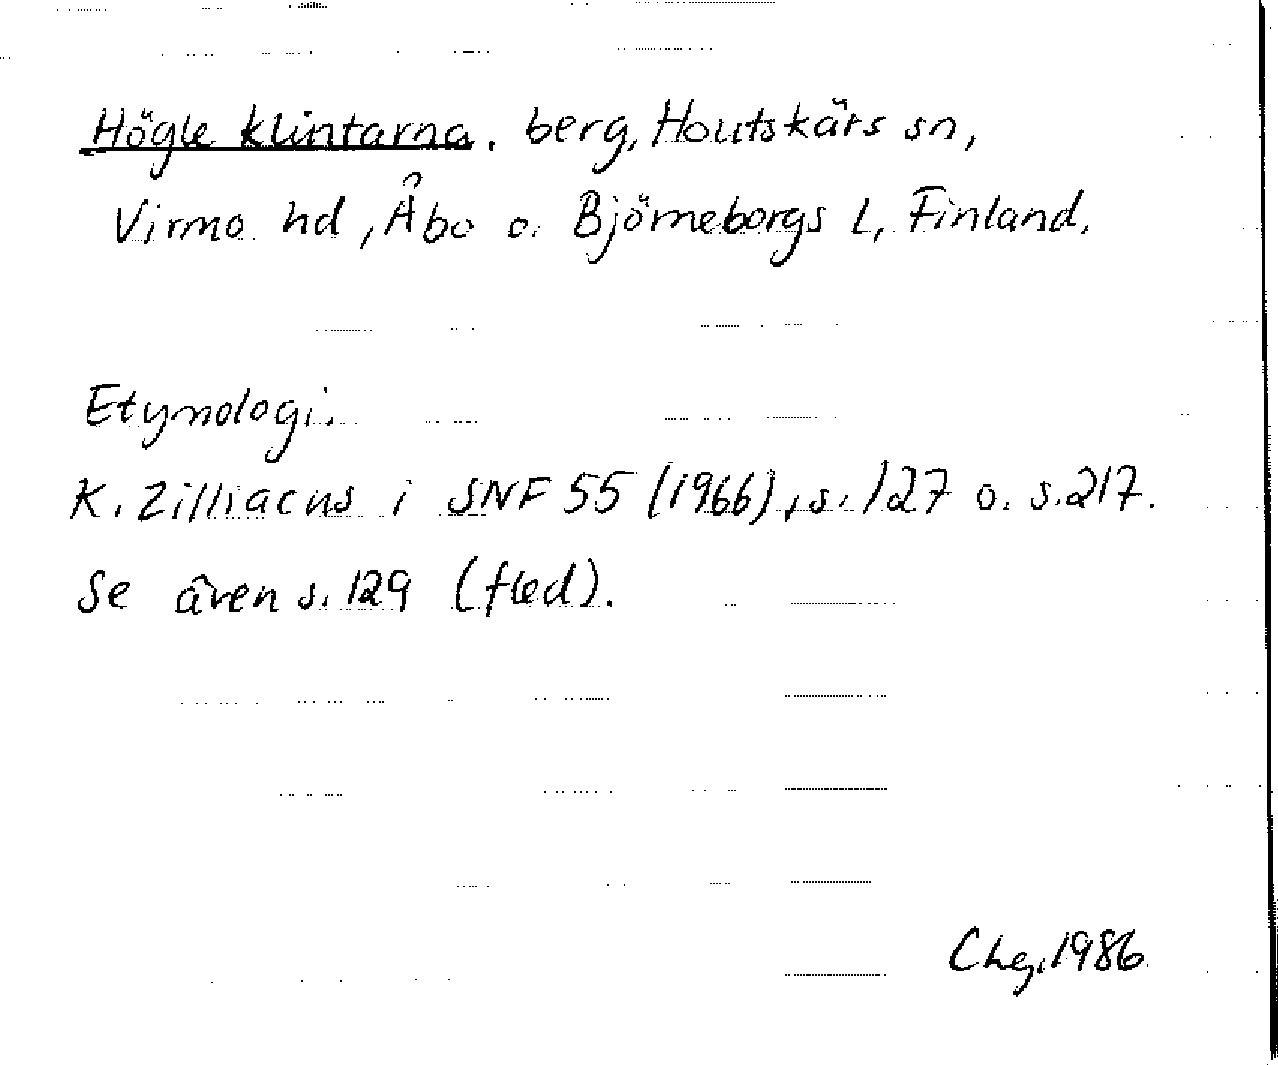 Högle klintarna. berg, Houtskärs sn,
Virmo hd, Åbo o. Björneborgs L, Finland.
Etymologi.
K. Zilliacus i SNF 55 (1966), s. 127 o. s. 217.
Se även s. 129 (fled).
Chg. 1986